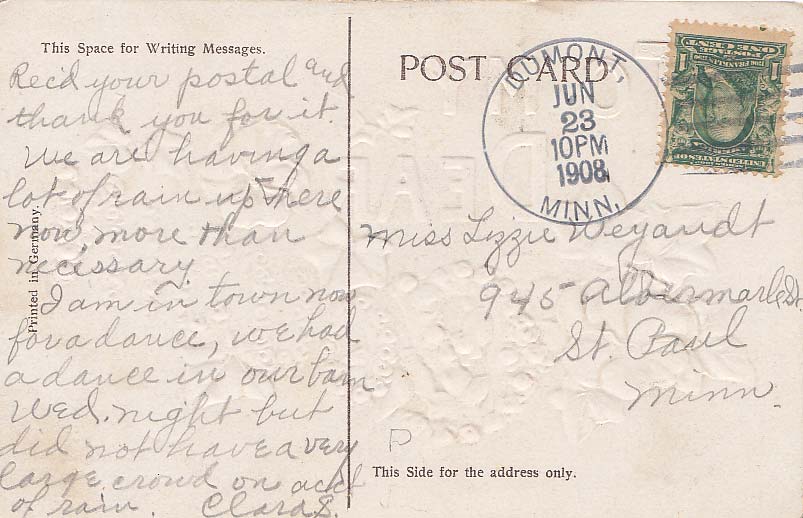 This Space for Writing Messages.
Rec'd your postal and
thank you for it.
We are having a
lot of rain up here
now, more than
necissary.
I am in town now
for a dance, we had
a dance in our barn
Wed. night but
did not have a very
large crowd on acct
of rain. Clara S.
Printed in Germany.
POST CARD
DUMONT,
JUN
23
10PM
1908
MINN.
Miss Lizzie Weyandt
945 Albermarle St.
St. Paul
Minn.
P
This Side for the address only.
1 POSTAGE 1
ONE CENT
UNITED STATES OF